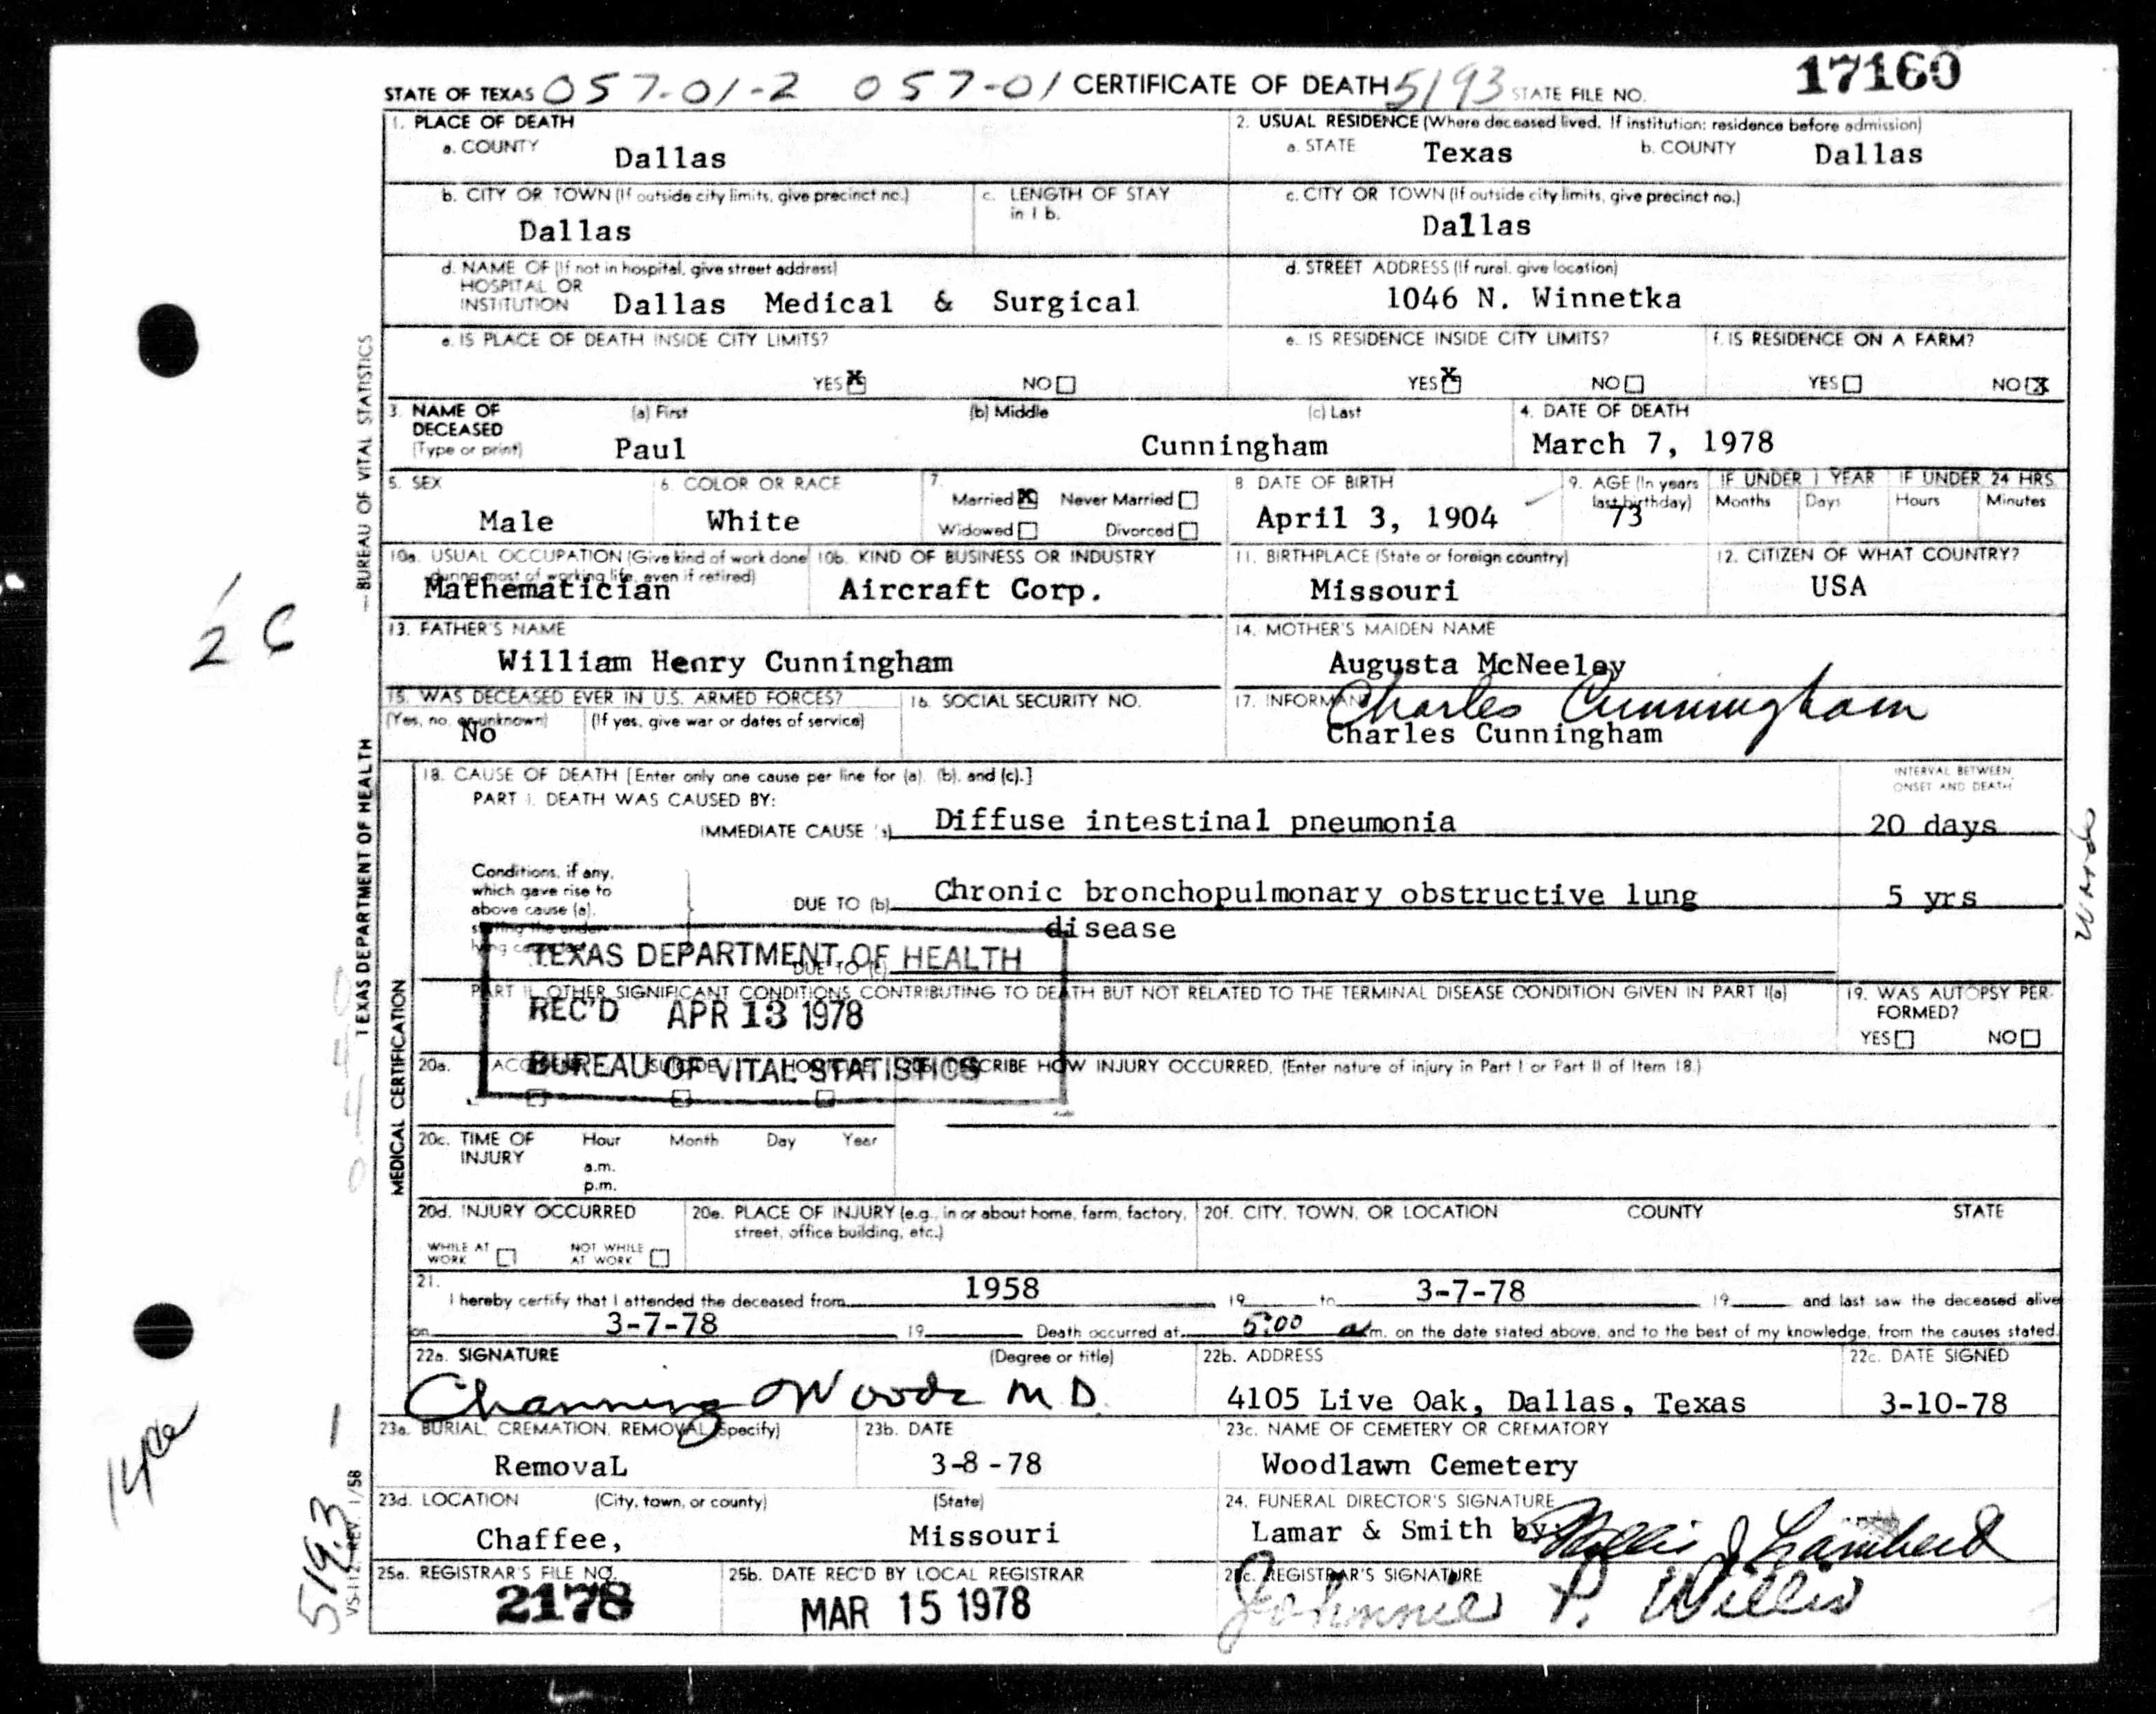 STATE OF TEXAS 057-01-2 057-01 CERTIFICATE OF DEATH 5193 STATE FILE NO. 17160
1. PLACE OF DEATH
a. COUNTY Dallas
2. USUAL RESIDENCE (Where deceased lived. If institution: residence before admission)
a. STATE Texas b. COUNTY Dallas
b. CITY OR TOWN (If outside city limits, give precinct no.) Dallas
c. LENGTH OF STAY in 1 b.
c. CITY OR TOWN (If outside city limits, give precinct no.) Dallas
d. NAME OF (If not in hospital, give street address)
HOSPITAL OR
INSTITUTION Dallas Medical & Surgical
d. STREET ADDRESS (If rural, give location)
1046 N. Winnetka
e. IS PLACE OF DEATH INSIDE CITY LIMITS?
YES X NO
e. IS RESIDENCE INSIDE CITY LIMITS?
YES X NO
f. IS RESIDENCE ON A FARM?
YES NO X
3. NAME OF DECEASED (Type or print)
(a) First Paul (b) Middle (c) Last Cunningham
4. DATE OF DEATH
March 7, 1978
5. SEX
Male
6. COLOR OR RACE
White
7. Married X Never Married
Widowed Divorced
8 DATE OF BIRTH
April 3, 1904
9. AGE (In years last birthday)
73
IF UNDER 1 YEAR
Months Days
IF UNDER 24 HRS.
Hours Minutes
10a. USUAL OCCUPATION (Give kind of work done during most of working life, even if retired)
Mathematician
10b. KIND OF BUSINESS OR INDUSTRY
Aircraft Corp.
11. BIRTHPLACE (State or foreign country)
Missouri
12. CITIZEN OF WHAT COUNTRY?
USA
13. FATHER'S NAME
William Henry Cunningham
14. MOTHER'S MAIDEN NAME
Augusta McNeeley
15. WAS DECEASED EVER IN U.S. ARMED FORCES?
(Yes, no, or unknown) (If yes, give war or dates of service)
No
16. SOCIAL SECURITY NO.
17. INFORMANT Charles Cunningham
Charles Cunningham
18. CAUSE OF DEATH [Enter only one cause per line for (a), (b), and (c).]
INTERVAL BETWEEN
ONSET AND DEATH
PART I. DEATH WAS CAUSED BY:
IMMEDIATE CAUSE (a) Diffuse intestinal pneumonia 20 days
Conditions, if any,
which gave rise to
above cause (a),
stating the under-
lying cause
DUE TO (b) Chronic bronchopulmonary obstructive lung 5 yrs
disease
DUE TO (c)
TEXAS DEPARTMENT OF HEALTH
REC'D APR 13 1978
BUREAU OF VITAL STATISTICS
PART II. OTHER SIGNIFICANT CONDITIONS CONTRIBUTING TO DEATH BUT NOT RELATED TO THE TERMINAL DISEASE CONDITION GIVEN IN PART I(a)
19. WAS AUTOPSY PER-
FORMED?
YES NO
20a. ACCIDENT SUICIDE HOMICIDE
20b. DESCRIBE HOW INJURY OCCURRED. (Enter nature of injury in Part I or Part II of Item 18.)
20c. TIME OF INJURY
Hour Month Day Year
a.m.
p.m.
20d. INJURY OCCURRED
WHILE AT WORK NOT WHILE AT WORK
20e. PLACE OF INJURY (e.g., in or about home, farm, factory, street, office building, etc.)
20f. CITY, TOWN, OR LOCATION COUNTY STATE
21.
I hereby certify that I attended the deceased from 1958 19 to 3-7-78 19 and last saw the deceased alive
on 3-7-78 19 Death occurred at 5:00 a.m. on the date stated above, and to the best of my knowledge, from the causes stated.
22a. SIGNATURE (Degree or title)
Channing Woods M D.
22b. ADDRESS
4105 Live Oak, Dallas, Texas
22c. DATE SIGNED
3-10-78
23a. BURIAL, CREMATION, REMOVAL (Specify)
RemovaL
23b. DATE
3-8-78
23c. NAME OF CEMETERY OR CREMATORY
Woodlawn Cemetery
23d. LOCATION (City, town, or county) (State)
Chaffee, Missouri
24. FUNERAL DIRECTOR'S SIGNATURE
Lamar & Smith by: Willis J Lambert
25a. REGISTRAR'S FILE NO.
2178
25b. DATE REC'D BY LOCAL REGISTRAR
MAR 15 1978
25c. REGISTRAR'S SIGNATURE
Johnnie P. Willis
TEXAS DEPARTMENT OF HEALTH — BUREAU OF VITAL STATISTICS
MEDICAL CERTIFICATION
VS-112, REV. 1/58
5193
Woods
2 C